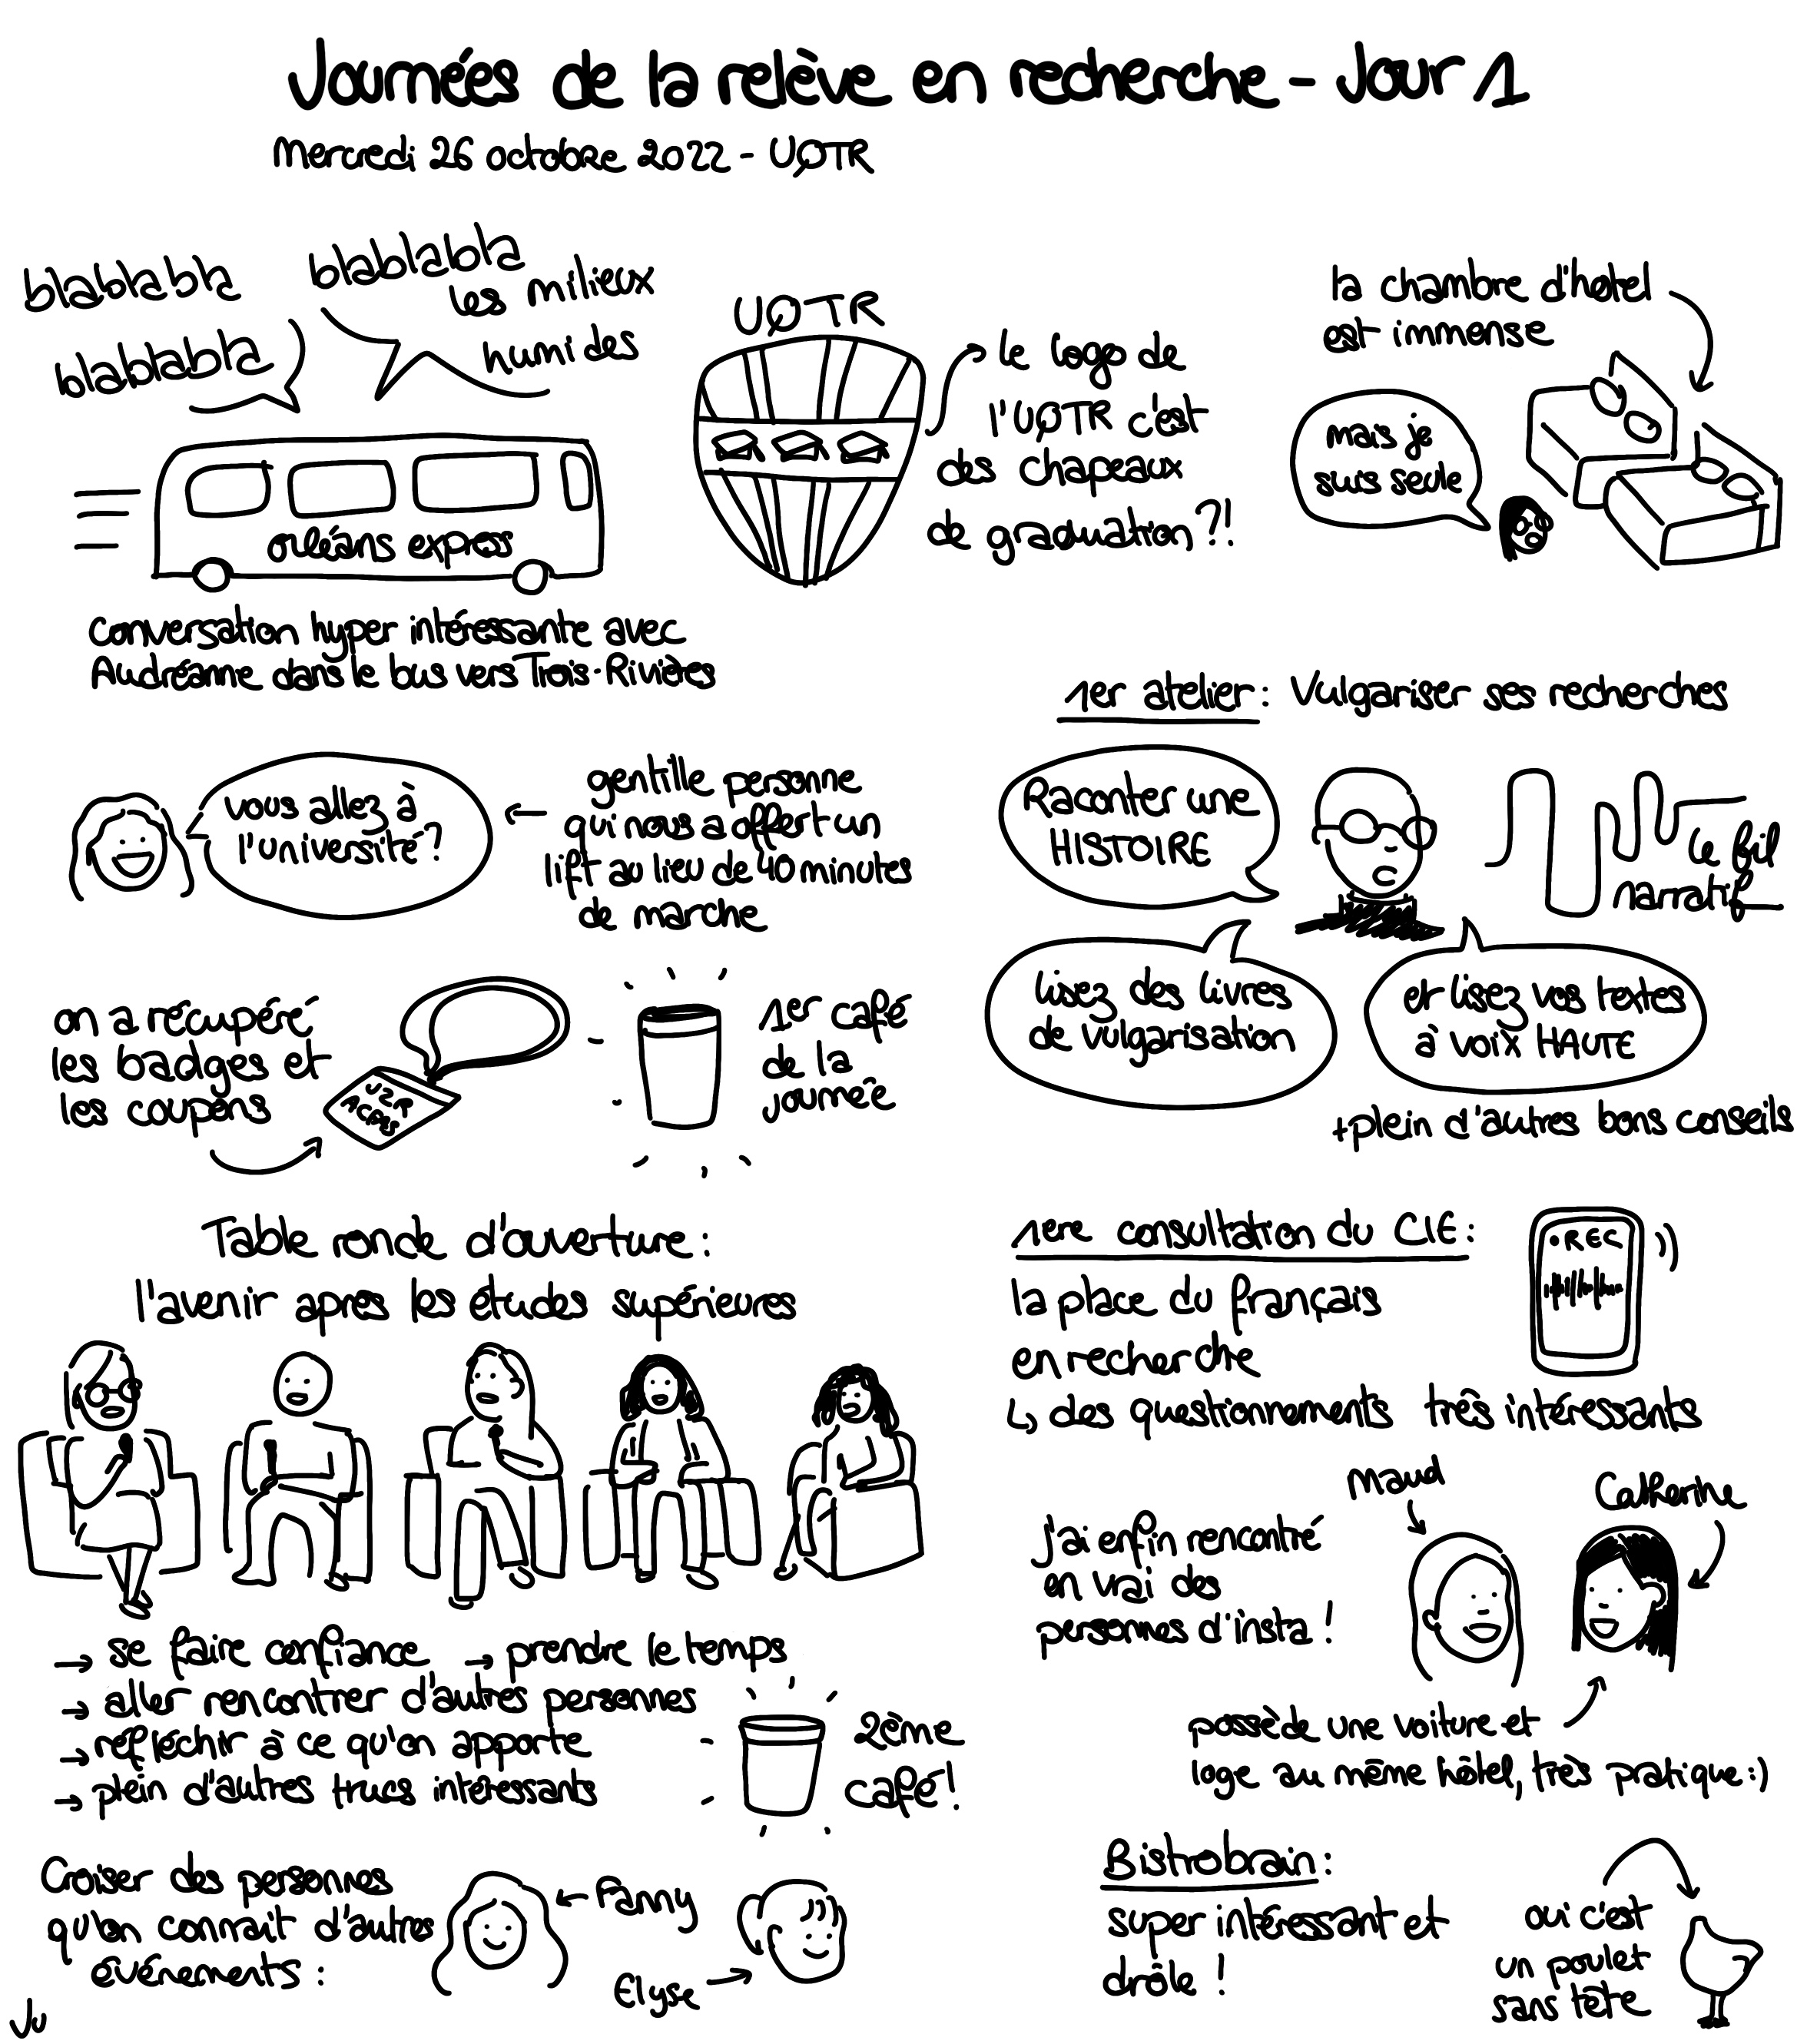 Journées de la relève en recherche - Jour 1
Mercredi 26 octobre 2022 - UQTR
blablabla
blablabla
blablabla
les milieux
humides
orléans express
Conversation hyper intéressante avec
Audréanne dans le bus vers Trois-Rivières
UQTR
le logo de
l'UQTR c'est
des chapeaux
de graduation?!
la chambre d'hotel
est immense
mais je
suis seule
vous allez à
l'université?
gentille personne
qui nous a offert un
lift au lieu de 40 minutes
de marche
on a récupéré
les badges et
les coupons
JRR
ACFAS
1er café
de la
journée
1er atelier: Vulgariser ses recherches
Raconter une
HISTOIRE
le fil
narratif
lisez des livres
de vulgarisation
et lisez vos textes
à voix HAUTE
+plein d'autres bons conseils
Table ronde d'ouverture:
l'avenir après les études supérieures
→ se faire confiance → prendre le temps
→ aller rencontrer d'autres personnes
→ réfléchir à ce qu'on apporte
→ plein d'autres trucs intéressants
2ème
café!
Croiser des personnes
qu'on connait d'autres
événements:
Fanny
Elyse
1ere consultation du CIE:
la place du français
en recherche
↳ des questionnements très intéressants
• REC
J'ai enfin rencontré
en vrai des
personnes d'insta!
Maud
Catherine
possède une voiture et
loge au même hôtel, très pratique:)
Bistrobrain:
super intéressant et
drôle!
oui c'est
un poulet
sans tête
Ju